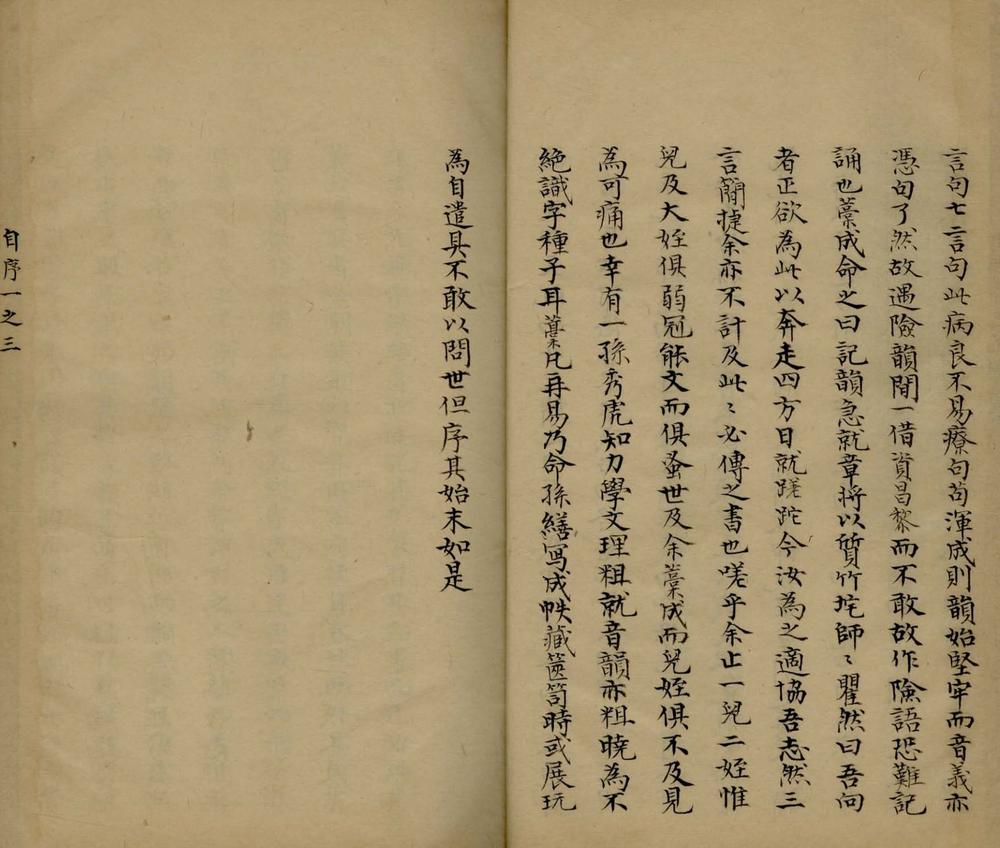 言句七言句此病良不易療句苟渾成則韻始堅牢而音義亦
憑句了然故遇險韻間一借資昌黎而不敢故作險語恐難記
誦也藁成命之曰記韻急就章將以質竹垞師〻瞿然曰吾向
者正欲為此以奔走四方日就蹉跎今汝為之適協吾志然三
言簡捷余亦不計及此〻必傳之書也嗟乎余止一兒二姪惟
兒及大姪俱弱冠能文而俱蚤世及余藁成而兒姪俱不及見
為可痛也幸有一孫秀虎知力學文理粗就音韻亦粗曉為不
絕識字種子耳藁凡再易乃命孫繕寫成帙藏篋笥時或展玩
為自遣具不敢以問世但序其始末如是
自序一之三